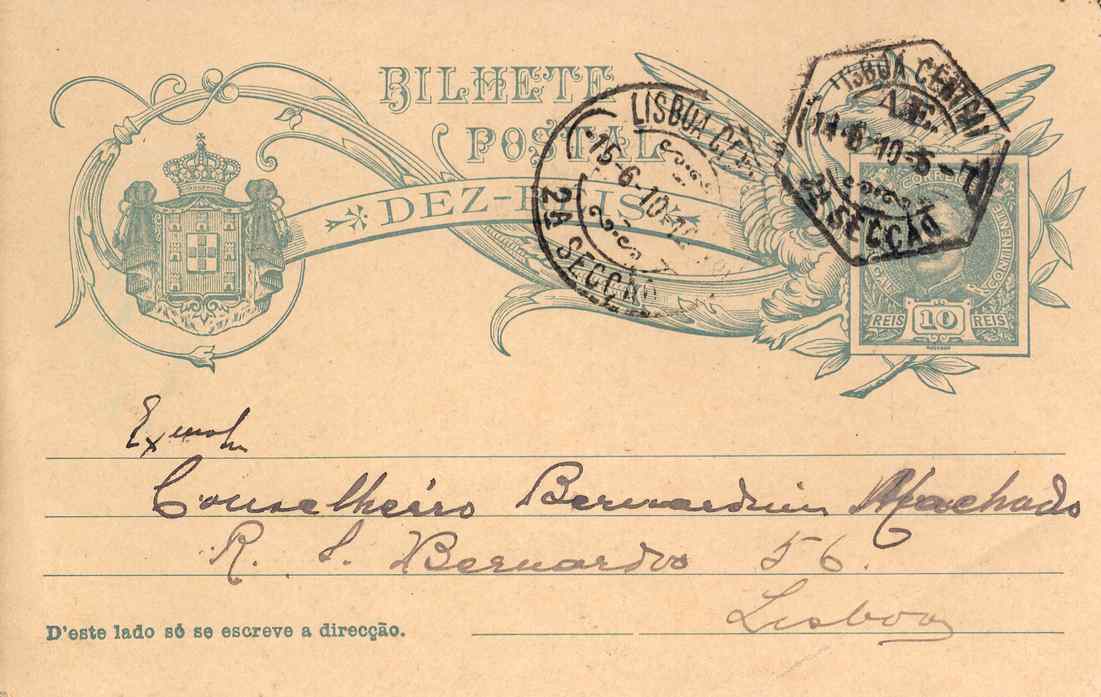 BILHETE
POSTAL
DEZ-REIS
LISBOA CEN
15-6-10
2ª SECÇÃO
LISBOA CENTRAL
14-6-10-5-T
2ª SECÇÃO
CONTINENTE
REIS 10 REIS
Conselheiro Bernardino Machado
R. S. Bernardo 56.
Lisboa
D'este lado só se escreve a direcção.